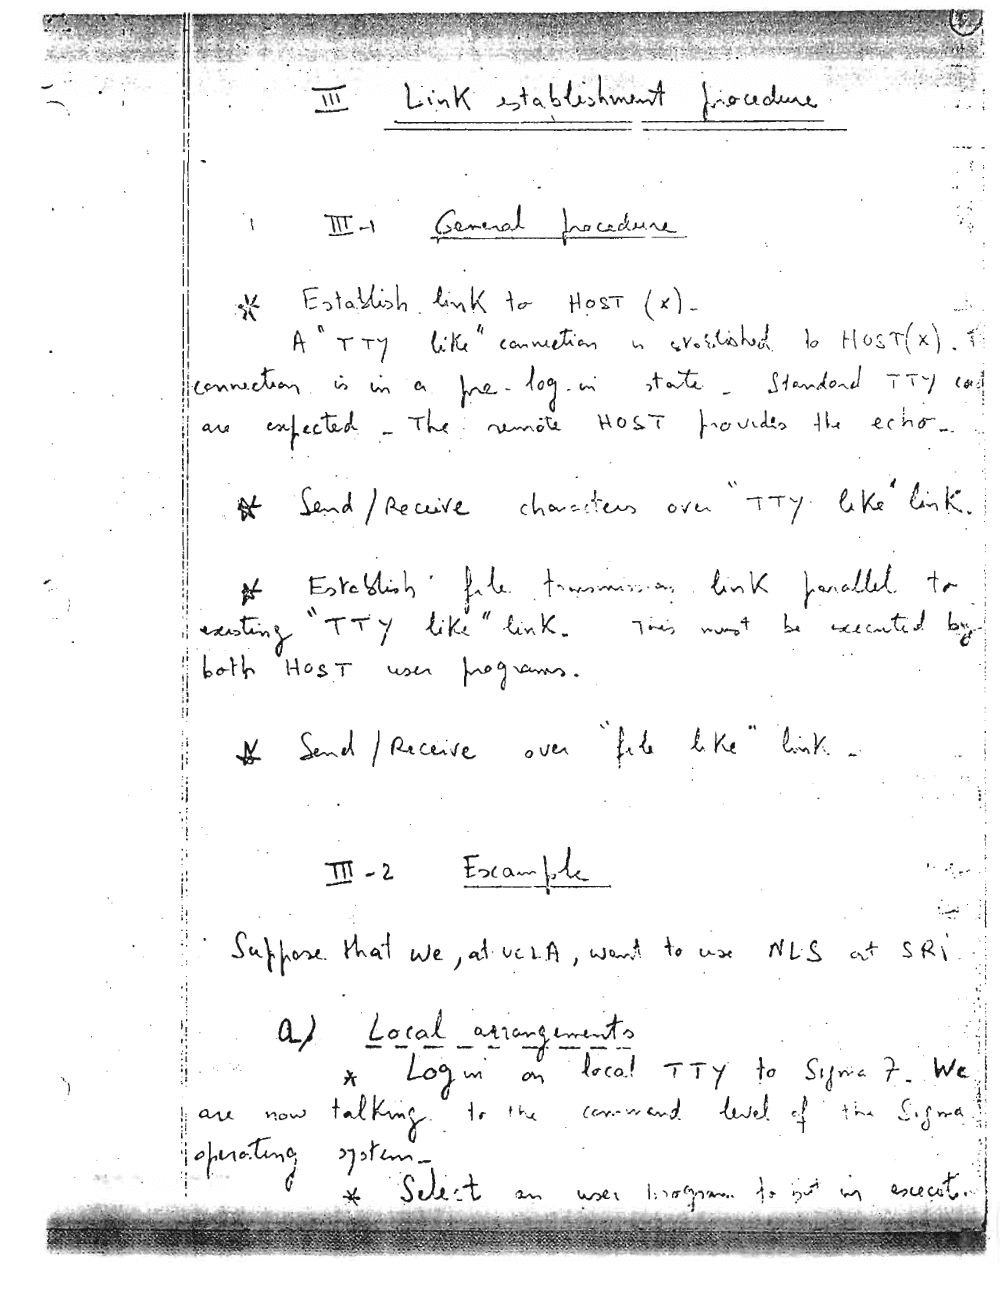 III Link establishment procedure
III-1 General procedure
* Establish link to HOST (x).
A "TTY like" connection is established to HOST(x). T
connection is in a pre-log-in state - Standard TTY
are expected - The remote HOST provides the echo -
* Send/Receive characters over "TTY like" link.
* Establish file transmission link parallel to
existing "TTY like" link. This must be executed by
both HOST user programs.
* Send/Receive over "file like" link -
III-2 Example
Suppose that we, at UCLA, want to use NLS at SRi
a) Local arrangements
* Log in on local TTY to Sigma 7. We
are now talking to the command level of the Sigma
operating system -
* Select an user program to put in execut.